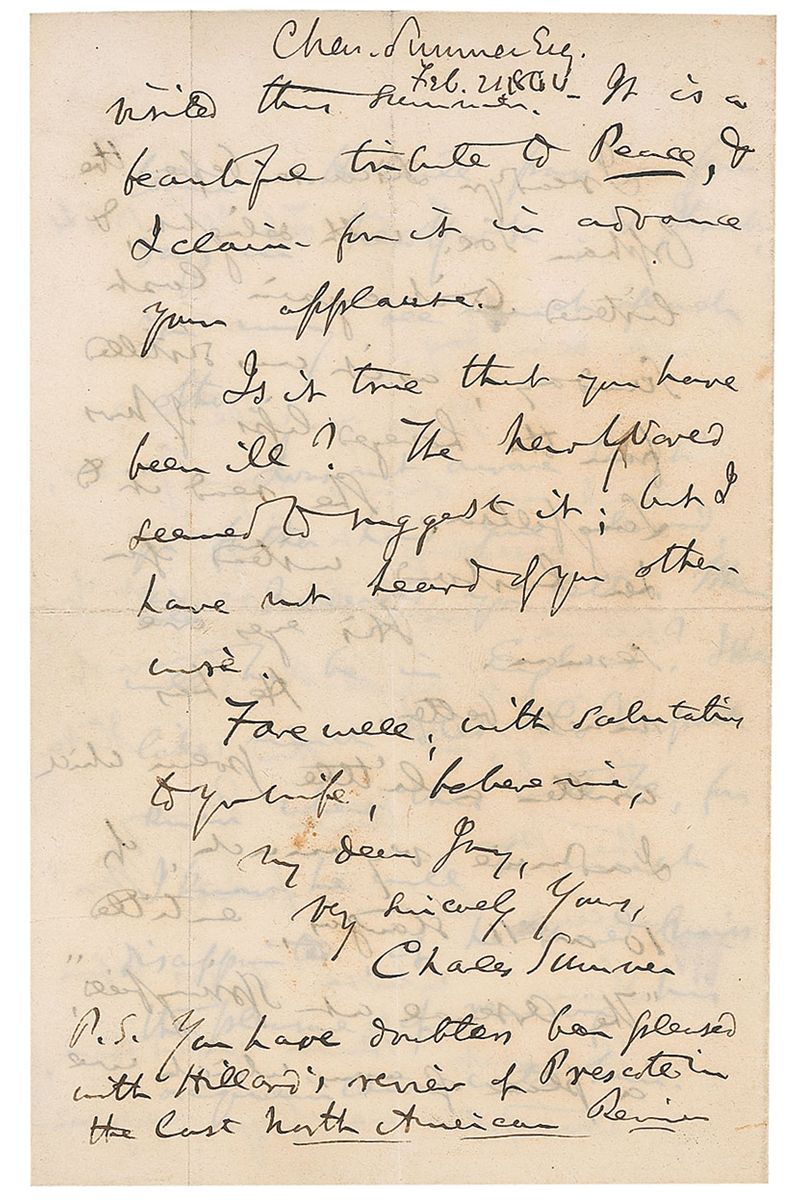 Chas. Sumner Esq.
Feb. 21
visited this summer. - It is a
beautiful tribute to Peace, &
I claim for it in advance
your applause.
Is it true that you have
been ill? The
seemed to suggest it; but I
have not heard of you other-
wise.
Farewell; with salutations
to yr wife, believe me,
my dear Jay,
very sincerely Yours,
Charles Sumner
P.S. You have doubtless been pleased
with Hillard's review of Prescott in
the last North American Review